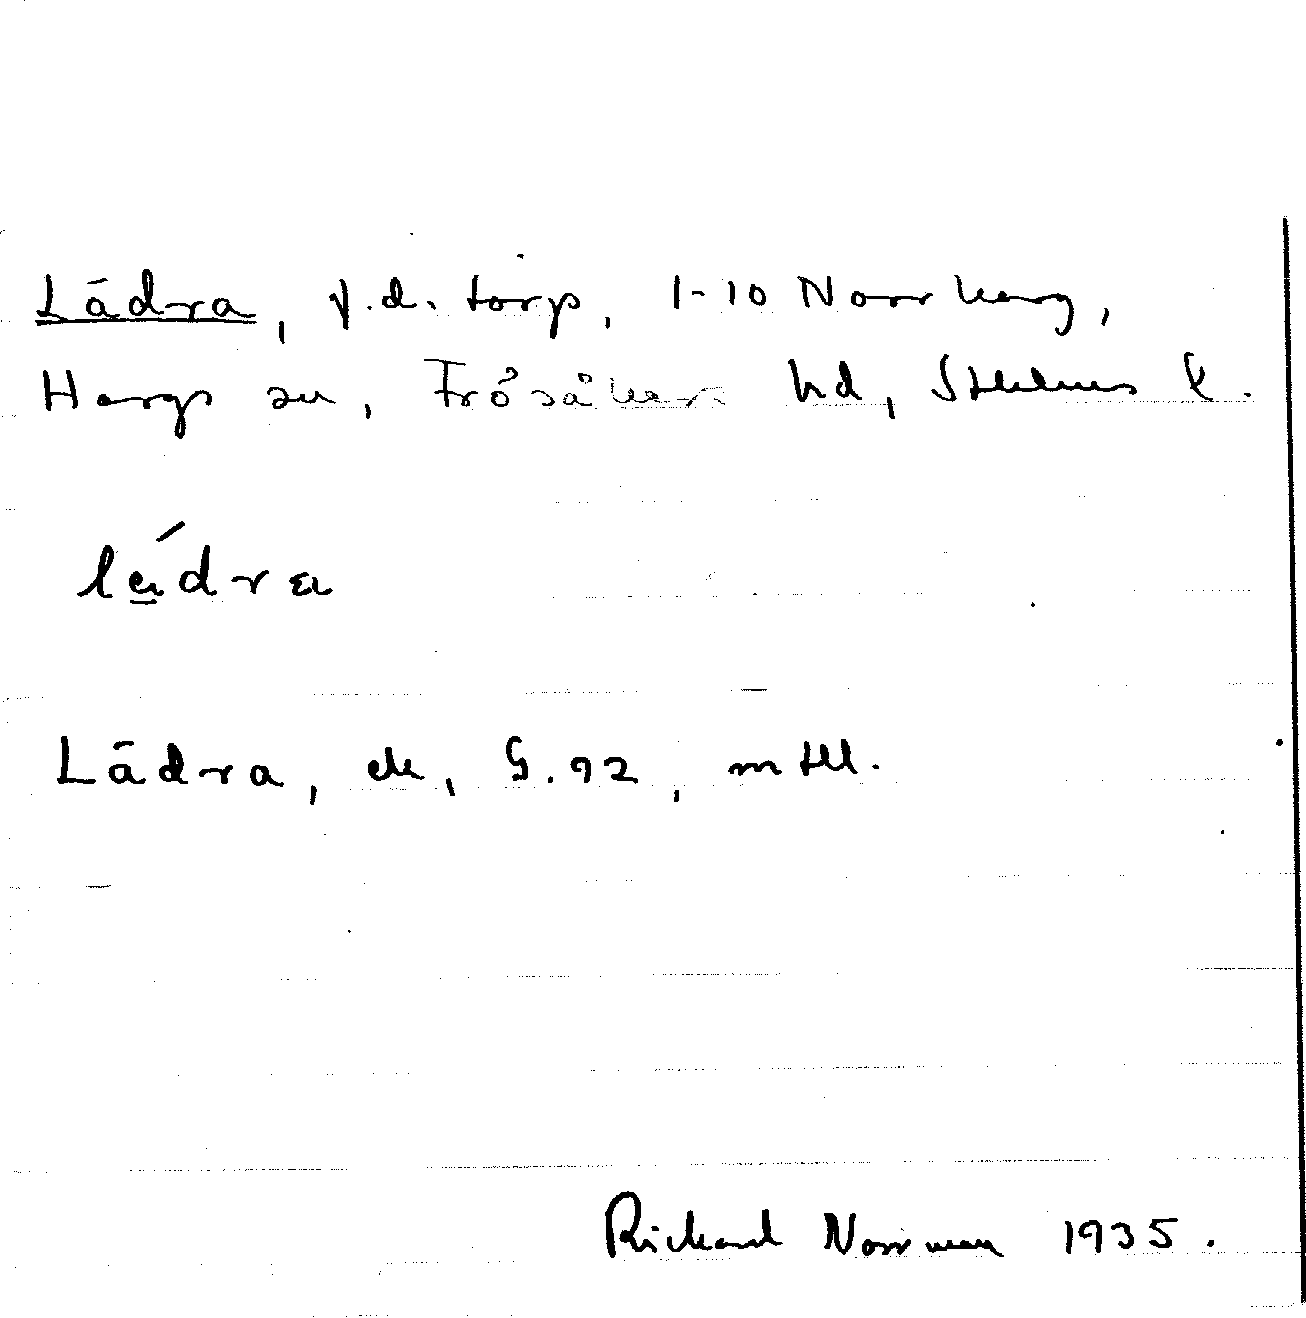 Lādra, f.d. torp, 1-10 Norrberg,
Hargs sn, Frösåkers hd, Sthlms l.
ládra
Lādra, ek, G. 92, mtll.
Rickard Norrman 1935.